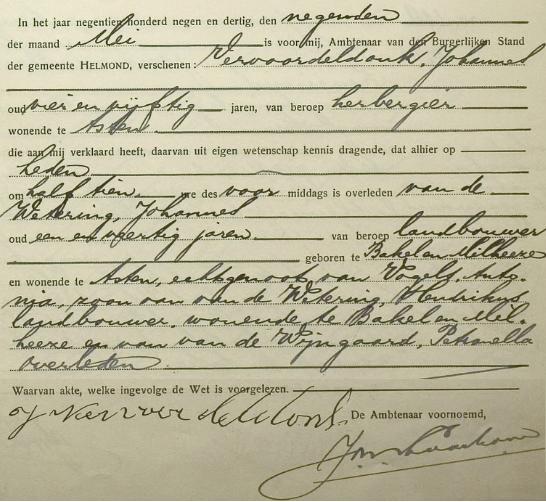 In het jaar negentien honderd negen en dertig, den negenden
der maand Mei is voor mij, Ambtenaar van den Burgerlijken Stand
der gemeente HELMOND, verschenen: Vervoordeldonk, Johannes
oud vier en vijftig jaren, van beroep herbergier
wonende te Asten
die aan mij verklaard heeft, daarvan uit eigen wetenschap kennis dragende, dat alhier op
heden
om half tien ure des voor middags is overleden van de
Wetering, Johannes
oud een en veertig jaren van beroep landbouwer
geboren te Bakel en Milheeze
en wonende te Asten, echtgenoot van Vogels, Anto-
nia, zoon van van de Wetering, Hendrikus,
landbouwer, wonende te Bakel en Mil-
heeze en van van de Wijngaard, Petronella
overleden.
Waarvan akte, welke ingevolge de Wet is voorgelezen.
J Vervoordeldonk. De Ambtenaar voornoemd,